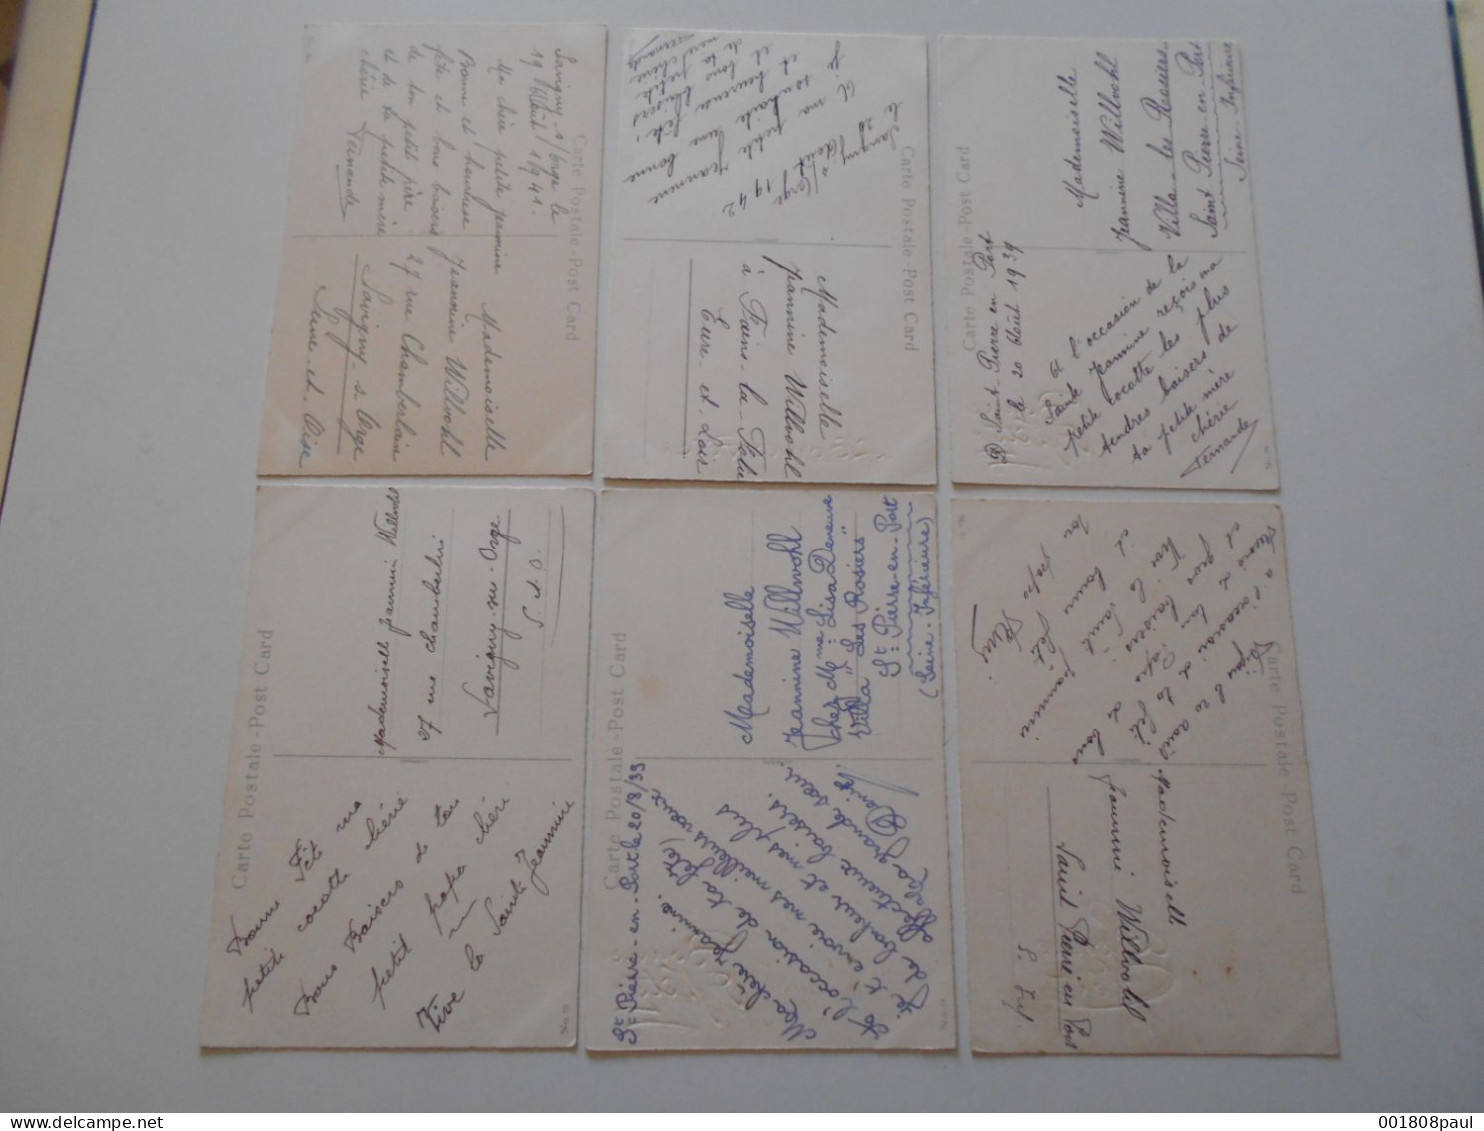 Carte Postale - Post Card
Savigny s/orge le
19 Août 1941.
Ma chère petite jeannine
Bonne et heureuse
fête et bons baisers
de ton petit père
et de ta petite mère
chérie Fernande
Mademoiselle
Jeannine Willvohl
27 rue Chamberlain
Savigny-s. Orge
Seine-et-Oise
Carte Postale - Post Card
Savigny s/Orge
le 20 Août 1942
A ma petite jeannine
je souhaite une bonne
et heureuse fête,
et bons baisers
de ta petite
mère chérie
Fernande
Mademoiselle
jeannine Willvohl
à Fains-la-Folie
Eure-et-Loir
Carte Postale - Post Card
Saint-Pierre en Port
le 20 Août 1939
A l'occasion de la
Sainte Jeannine reçois ma
petite cocotte les plus
tendres baisers de
ta petite mère
chérie
Fernande
Mademoiselle
Jeannine Willvohl
Villa-les Rosiers
Saint Pierre en Port
Seine Inférieure
Carte Postale - Post Card
Bonne Fête ma
petite cocotte chérie
Bons Baisers de ton
petit papa chéri
Vive la Sainte Jeannine
Mademoiselle Jeannine Willvohl
27 rue chamberlin
Savigny-sur-Orge
S. et O.
Carte Postale - Post Card
St Pierre-en-Port le 20/8/39
Ma chère Jeannine.
A l'occasion de ta fête)
Je t'envoie mes meilleurs vœux
de bonheur et mes plus
affectueux baisers.
Ta grande sœur.
Denise
Mademoiselle
Jeannine Willvohl
chez Mme Lisa Deneuve
Villa "Les Rosiers"
St Pierre-en-Port
(Seine-Inférieure)
Carte Postale - Post Card
le 20 août
Mademoiselle
Jeannine Willvohl
Saint Pierre en Port
S. Inf.
001808paul